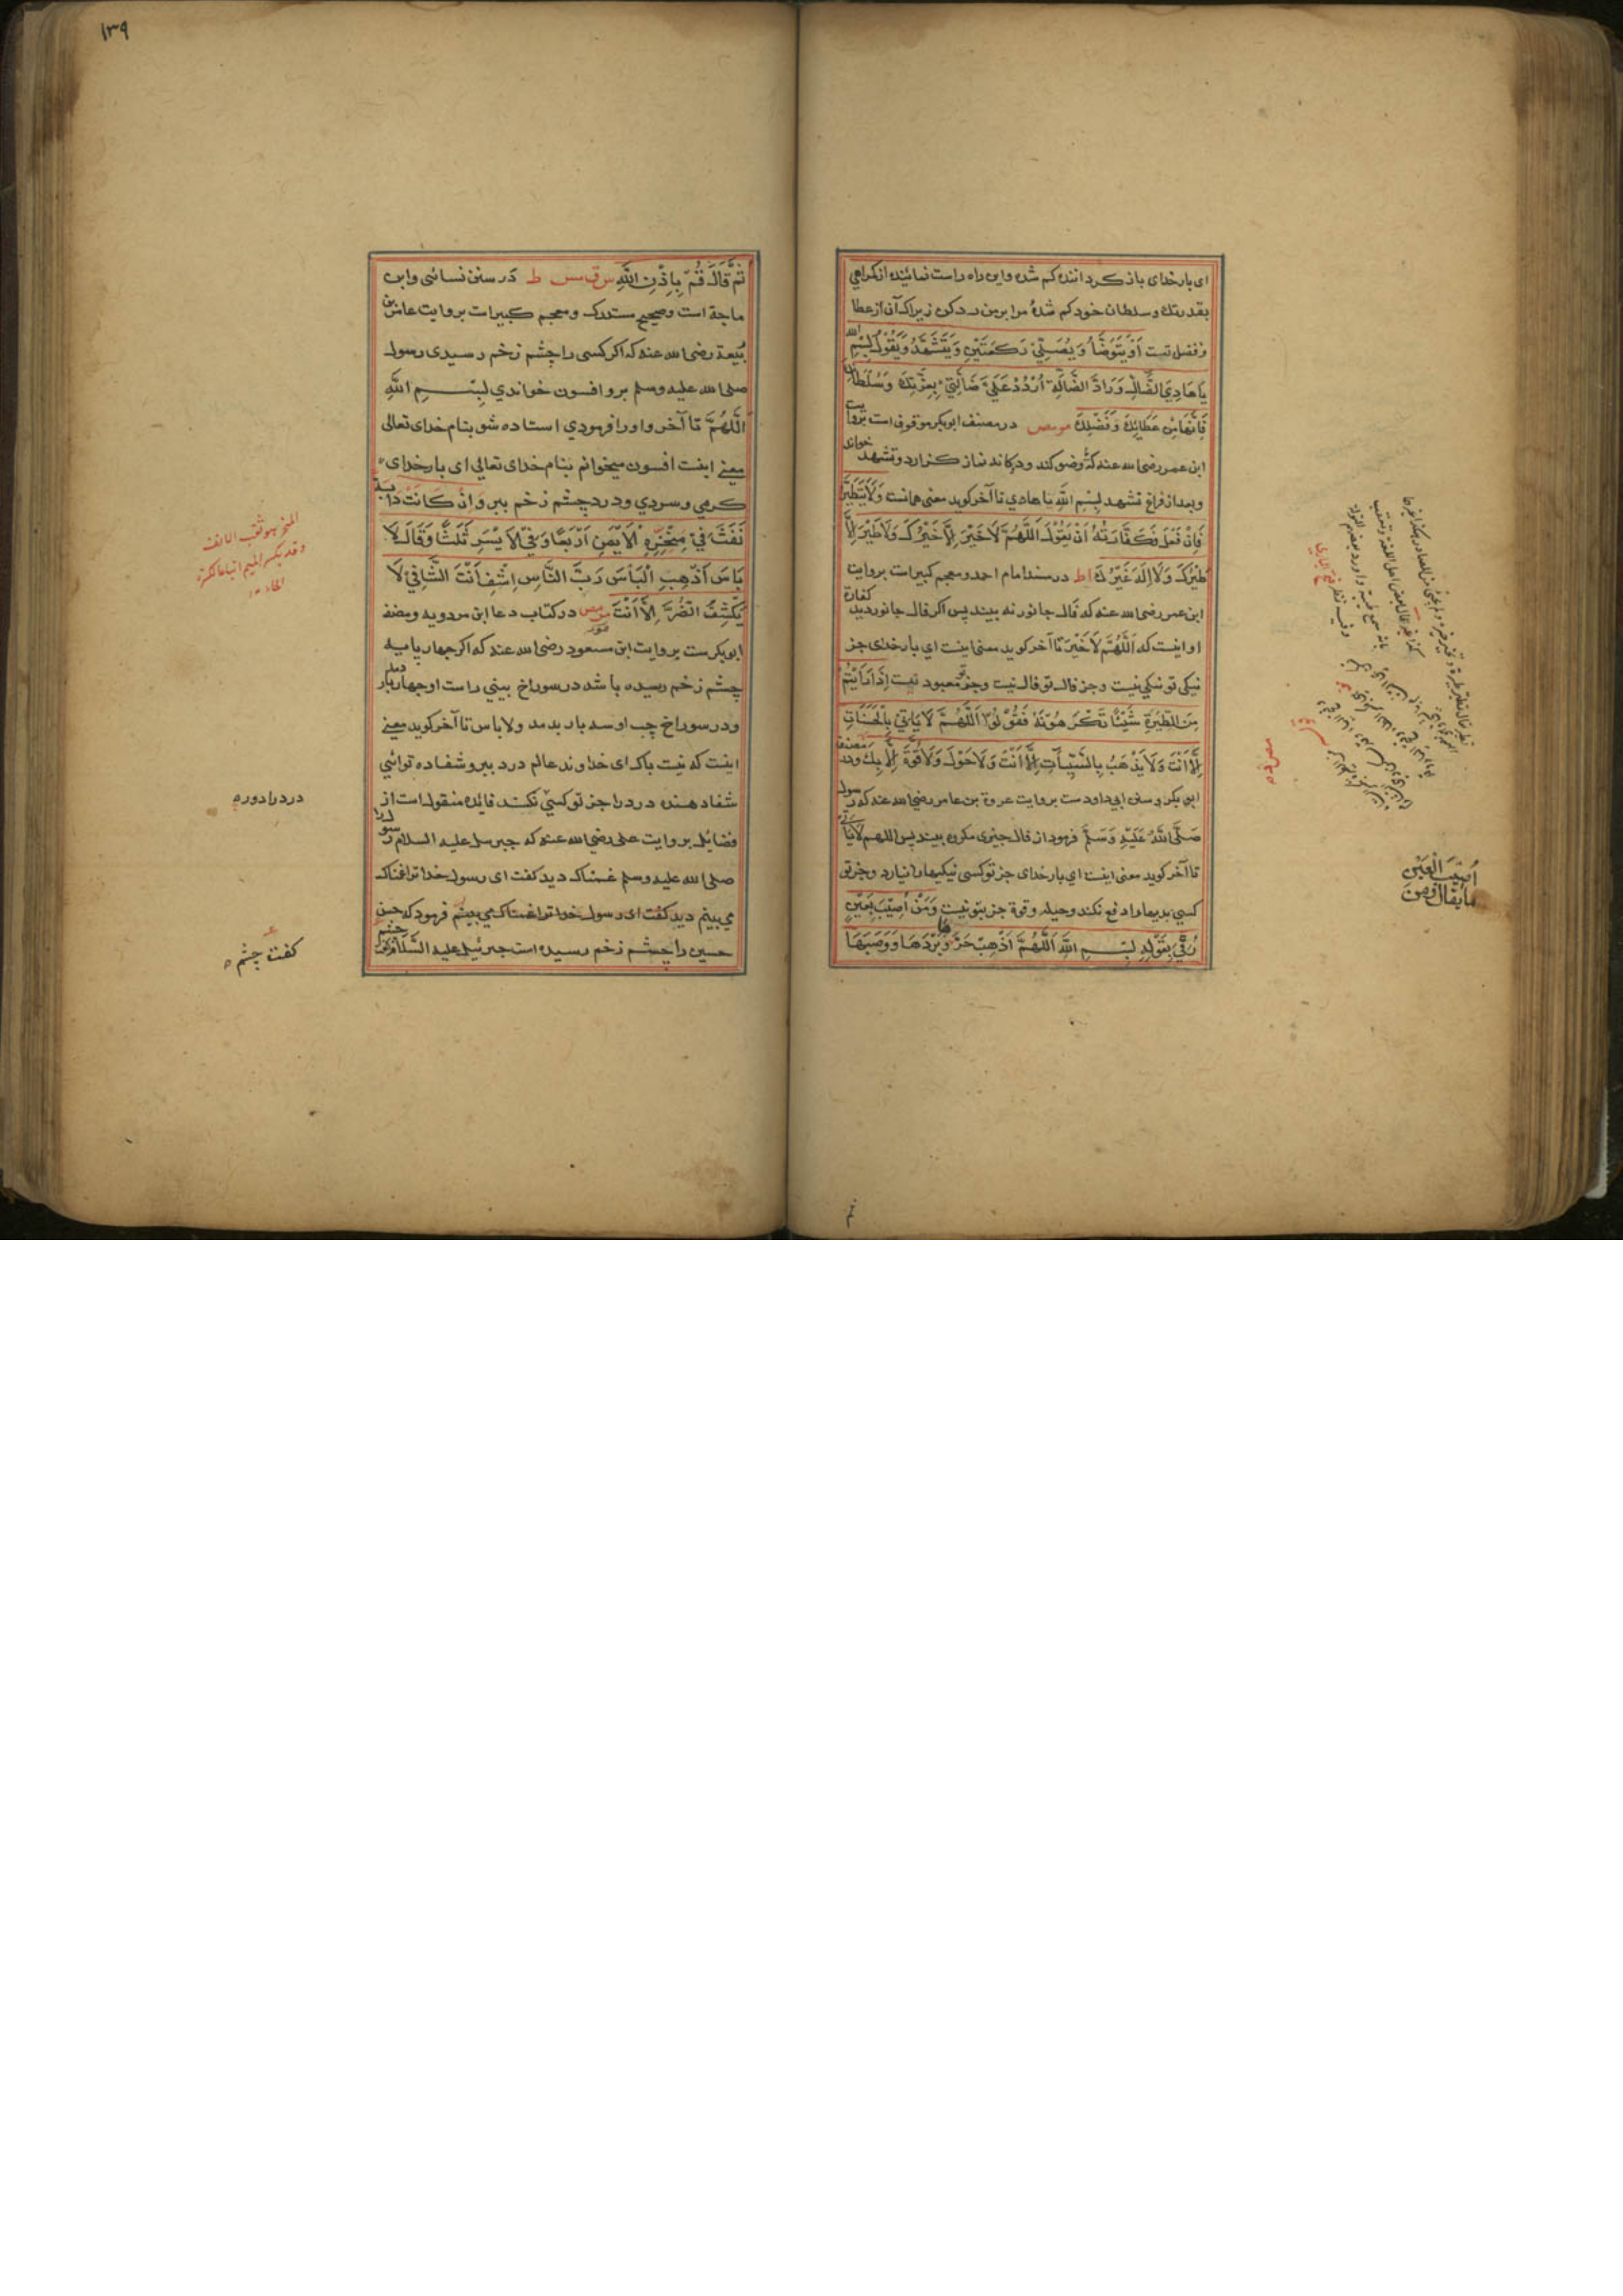 ای بار خدای باز کرداننده کم شده و این راه راست نماینده از کمراهی
بقدرتك و سلطان خود کم شدهٔ مرا بر من رد کن زیراک آن از عطا
و فضل تست اَوْ يَتَوَضَّأُ وَيُصَلِّيْ رَكْعَتَيْنِ وَيَتَشَهَّدُ وَيَقُوْلُ بِسْمِ اللّٰه
يَا هَادِيَ الضَّالِّ وَرَادَّ الضَّالَّةِ اُرْدُدْ عَلَيَّ ضَالَّتِيْ بِعِزَّتِكَ وَسُلْطَانِكَ
فَاِنَّهَا مِنْ عَطَائِكَ وَفَضْلِكَ مومص در مصنف ابوبکر موقوف است بروایت
ابن عمر رضی الله عنه که وضو کند و دوکانه نماز کزارد و تشهد خواند
و بعد از فراغ تشهد بِسْمِ اللّٰهِ یا هادي تا آخر کوید معنی همانست وَلَا يَتَطَيَّرُ
فَاِنْ فَعَلَ فَكَفَّارَتُهُ اَنْ يَقُوْلَ اَللّٰهُمَّ لَا خَيْرَ اِلَّا خَيْرُكَ وَلَا طَيْرَ اِلَّا
طَيْرُكَ وَلَا اِلٰهَ غَيْرُكَ اط در مسند امام احمد و معجم کبیر است بروایت
ابن عمر رضی الله عنه که فال جانور نه بیند پس اکر فال جانور دید کفارة
او اینست که اَللّٰهُمَّ لَا خَيْرَ تا آخر کوید معنی اینست ای بار خدای جز
نیکی تو نیکی نیست و جز فال تو فال نیست و جز تو معبود نیست اِذَا رَاَيْتُمْ
مِنَ الطِّيَرَةِ شَيْئًا تَكْرَهُوْنَهُ فَقُوْلُوْا اَللّٰهُمَّ لَا يَاْتِيْ بِالْحَسَنَاتِ
اِلَّا اَنْتَ وَلَا يَذْهَبُ بِالسَّيِّاٰتِ اِلَّا اَنْتَ وَلَا حَوْلَ وَلَا قُوَّةَ اِلَّا بِكَ ودر مصنف
ابی بکر و سنن ابی داودست بروایت عروة بن عامر رضی الله عنه که رسول
صَلَّى اللّٰهُ عَلَيْهِ وَسَلَّمَ فرمود از فال چیزی مکروه بیند پس اللهم لا یاتي
تا آخر کوید معنی اینست ای بار خدای جز تو کسی نیکیها را نیارد و جز تو
کسی بدیها را دفع نکند و حیله و قوة جز بتو نیست وَمَنْ اُصِيْبَ بِعَيْنٍ
رُقِيَ بِقَوْلِهِ بِسْمِ اللّٰهِ اَللّٰهُمَّ اَذْهِبْ حَرَّهَا وَبَرْدَهَا وَوَصَبَهَا
اُصِيْبَ الْعَيْن
ما يقال لمن
١٣٩
ثُمَّ قَالَ قُمْ بِاِذْنِ اللّٰهِ س ق مس ط در سنن نسائی و ابن
ماجة است و صحیح مستدرک و معجم کبیر است بروایت عامر بن
ربیعة رضی الله عنه که اکر کسی را چشم زخم رسیدی رسول
صلی الله علیه وسلم برو افسون خواندي بِسْمِ اللّٰهِ
اَللّٰهُمَّ تا آخر و او را فرمودي استاده شو بنام خدای تعالی
معنی اینست افسون میخوانم بنام خدای تعالی ای بار خدای
کرمي و سردي و درد چشم زخم ببر وَاِنْ كَانَتْ دَابَّةً
نَفَثَ فِيْ مِنْخَرِهِ الْاَيْمَنِ اَرْبَعًا وَفِي الْاَيْسَرِ ثَلٰثًا وَقَالَ لَا
بَاْسَ اَذْهِبِ الْبَاْسَ رَبَّ النَّاسِ اِشْفِ اَنْتَ الشَّافِيْ لَا
يَكْشِفُ الضُّرَّ اِلَّا اَنْتَ مومص در کتاب دعا ابن مردویه و مصنف
ابوبکرست بروایت ابن مسعود رضی الله عنه که اکر چهار پایه
چشم زخم رسیده باشد در سوراخ بیني راست او چهار بار دمد
و در سوراخ چپ او سه بار بدمد و لا باس تا آخر کوید معنی
اینست که نیست باک ای خداوند عالم درد ببر و شفا ده توائی
شفا دهنده درد را جز تو کسی نکند فائده منقول است از
فضایل بروایت علی رضی الله عنه که جبرئیل علیه السلام رسول را
صلی الله علیه وسلم غمناک دید کفت ای رسول خدا ترا غمناک
می بینم دید کفت ای رسول خدا ترا غمناک می بینم فرمود که حسن
حسین را چشم زخم رسیده است جبرئیل علیه السَّلَام
المنخر هو ثقب الانف
وقد يكسر الميم اتباعا لكسرة
الخاء
درد را دوره
کفت چشم